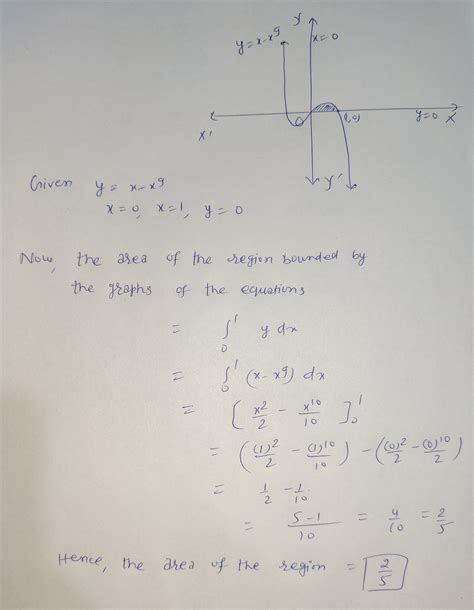 Y
y = x-x⁹
x=0
O
(1,0)
y=0
X
X'
Y'
Given y = x-x⁹
x=0, x=1, y=0
Now, the area of the region bounded by
the graphs of the equations
= ∫₀¹ y dx
= ∫₀¹ (x-x⁹) dx
= [ x²/2 - x¹⁰/10 ]₀¹
= ( (1)²/2 - (1)¹⁰/10 ) - ( (0)²/2 - (0)¹⁰/2 )
= 1/2 - 1/10
= 5-1/10 = 4/10 = 2/5
Hence, the area of the region = 2/5